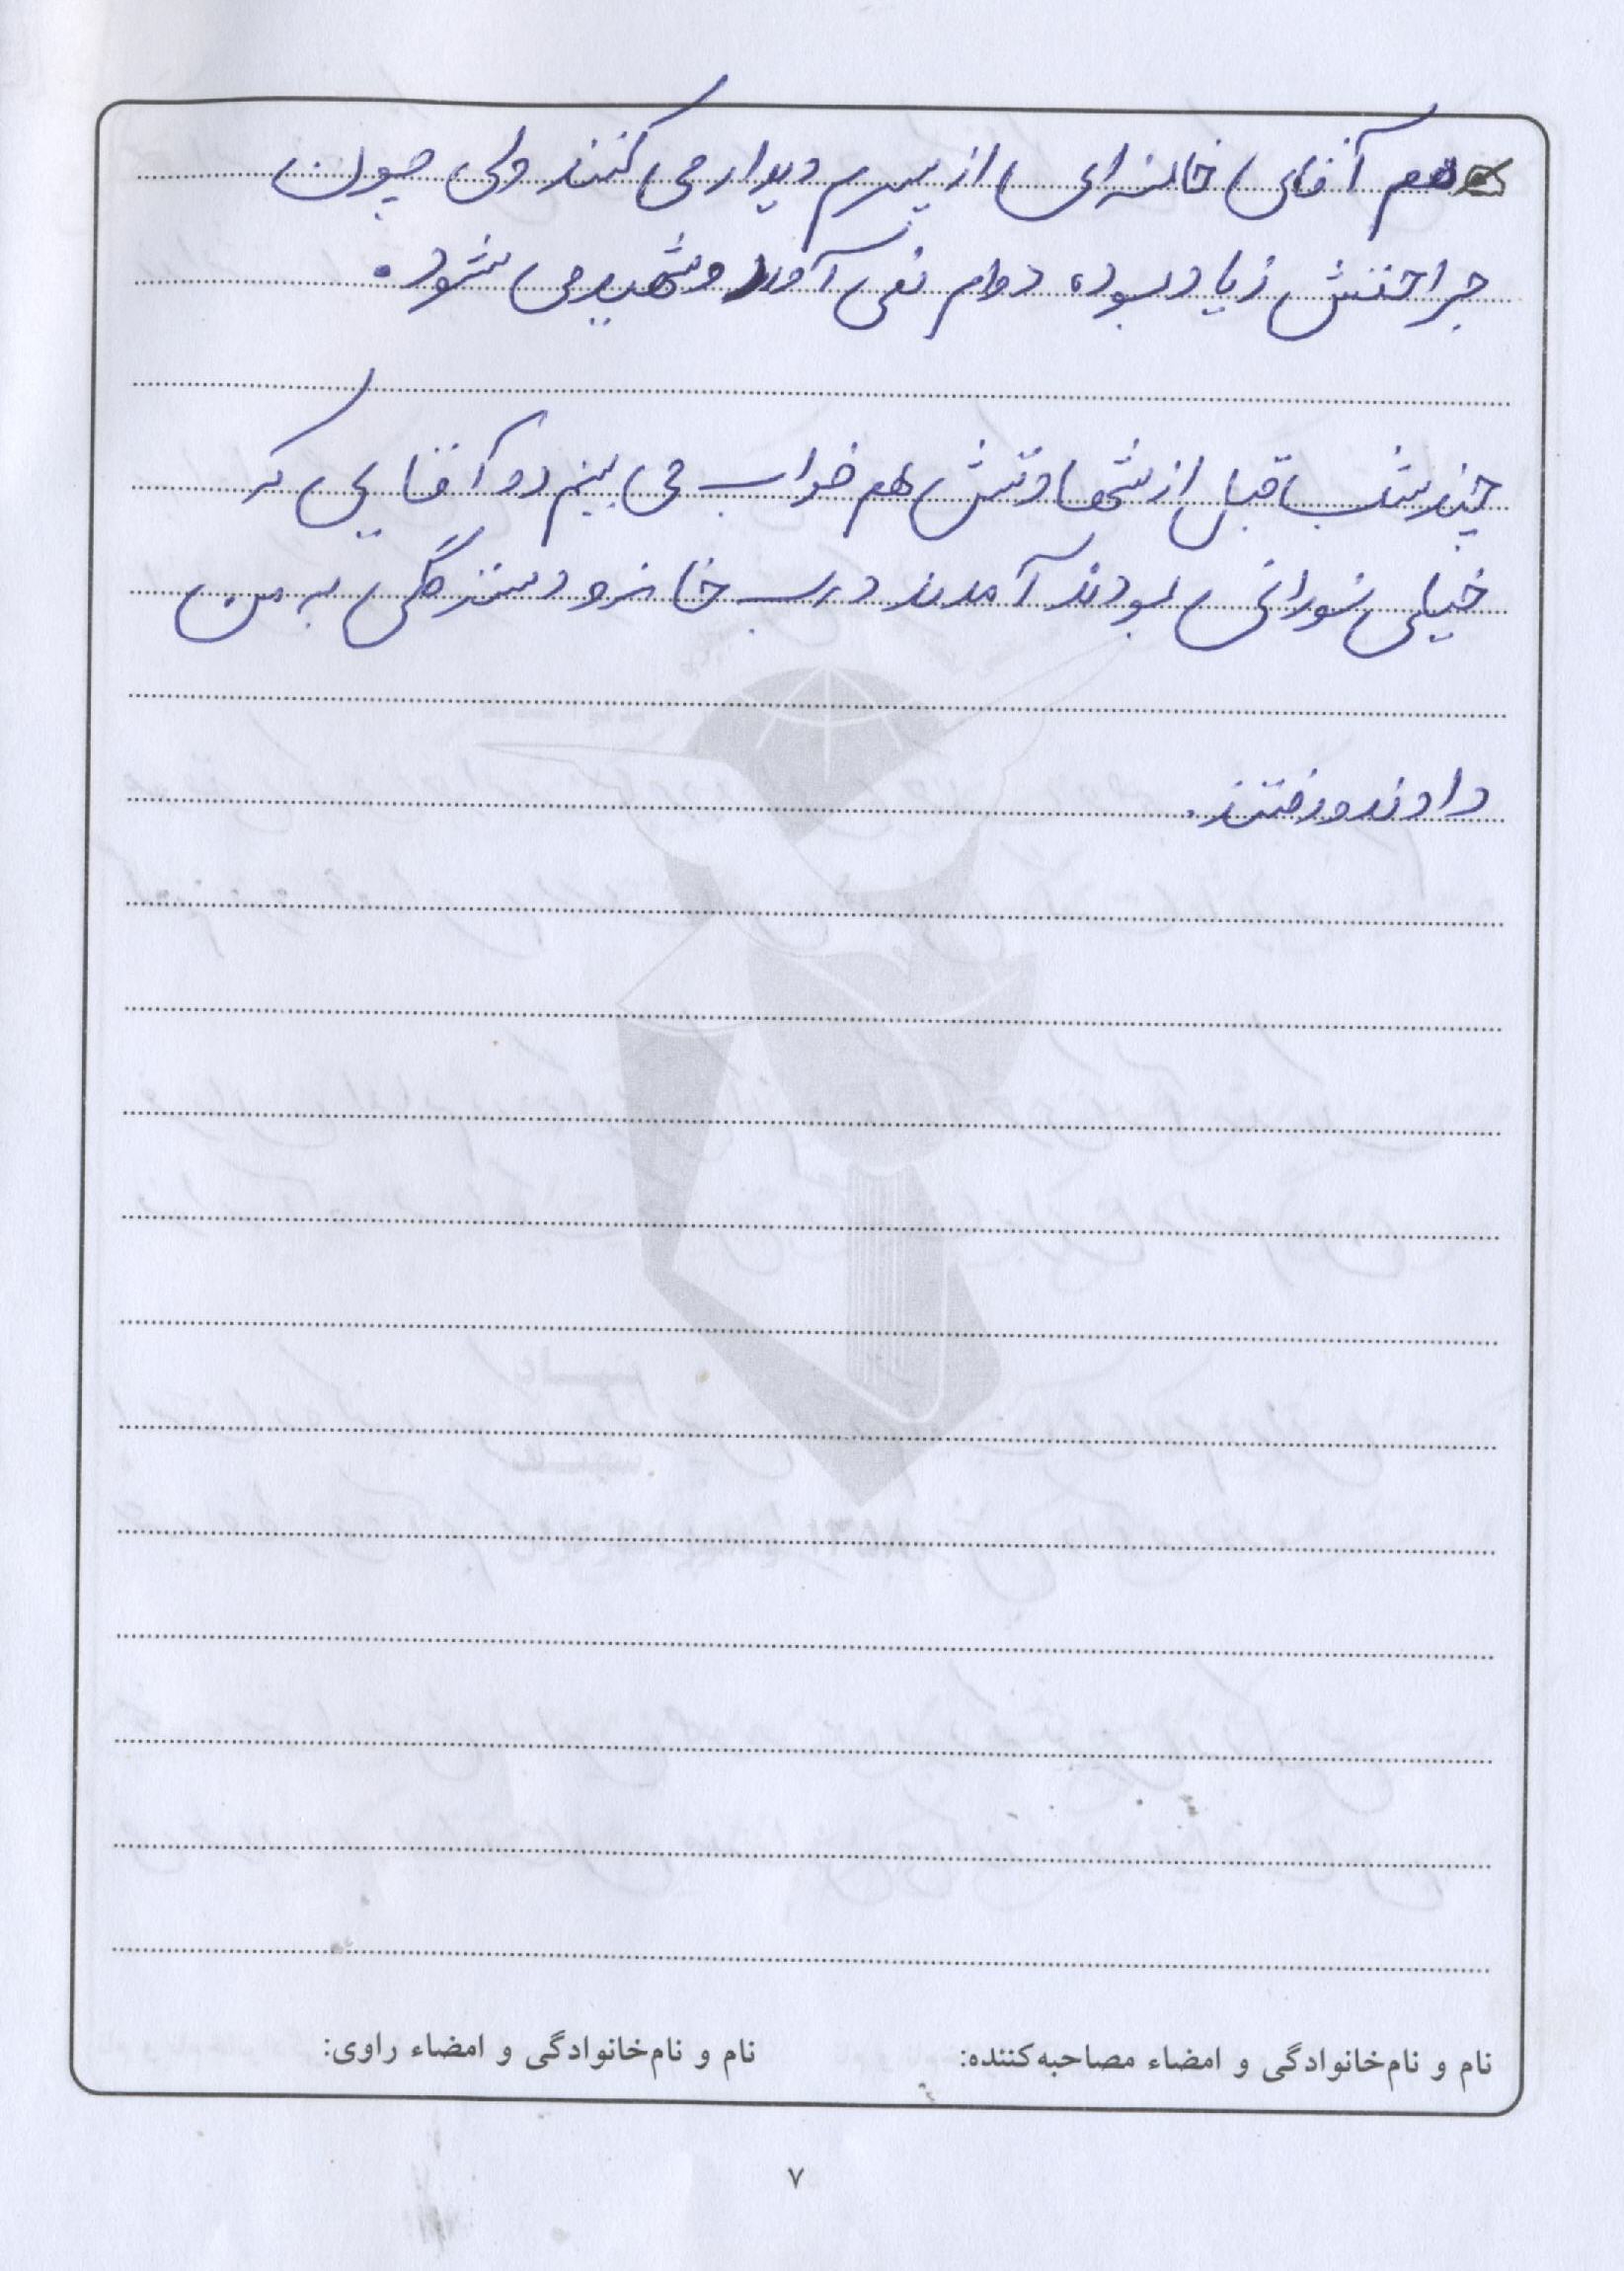 هم آقای خامنه‌ای از پسرم دیدار می کنند ولی چون
جراحتش زیاد بوده دوام نمی آورد و شهید می شود.
چند شب قبل از شهادتش هم خواب می بینم دو آقایی که
خیلی نورانی بودند آمدند درب خانه و دسته گلی به من
دادند و رفتند.
نام و نام‌خانوادگی و امضاء مصاحبه‌کننده:
نام و نام‌خانوادگی و امضاء راوی:
۷